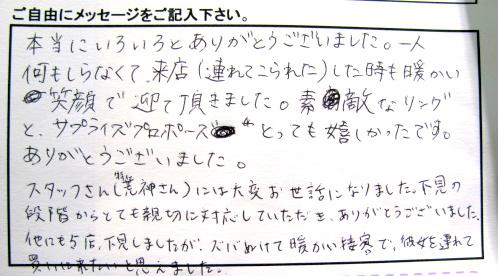 ご自由にメッセージをご記入下さい。
本当にいろいろとありがとうございました。一人
何もしらなくて、来店(連れてこられた)した時も暖かい
笑顔で迎て頂きました。素敵なリング
と、サプライズプロポーズ とっても嬉しかったです。
ありがとうございました。
スタッフさん(荒神さん)には大変お世話になりました。下見の
段階からとても親切に対応していただき、ありがとうございました。
他にも5店、下見しましたが、ズバぬけて暖かい接客で、彼女を連れて
買いに来たいと思えました。